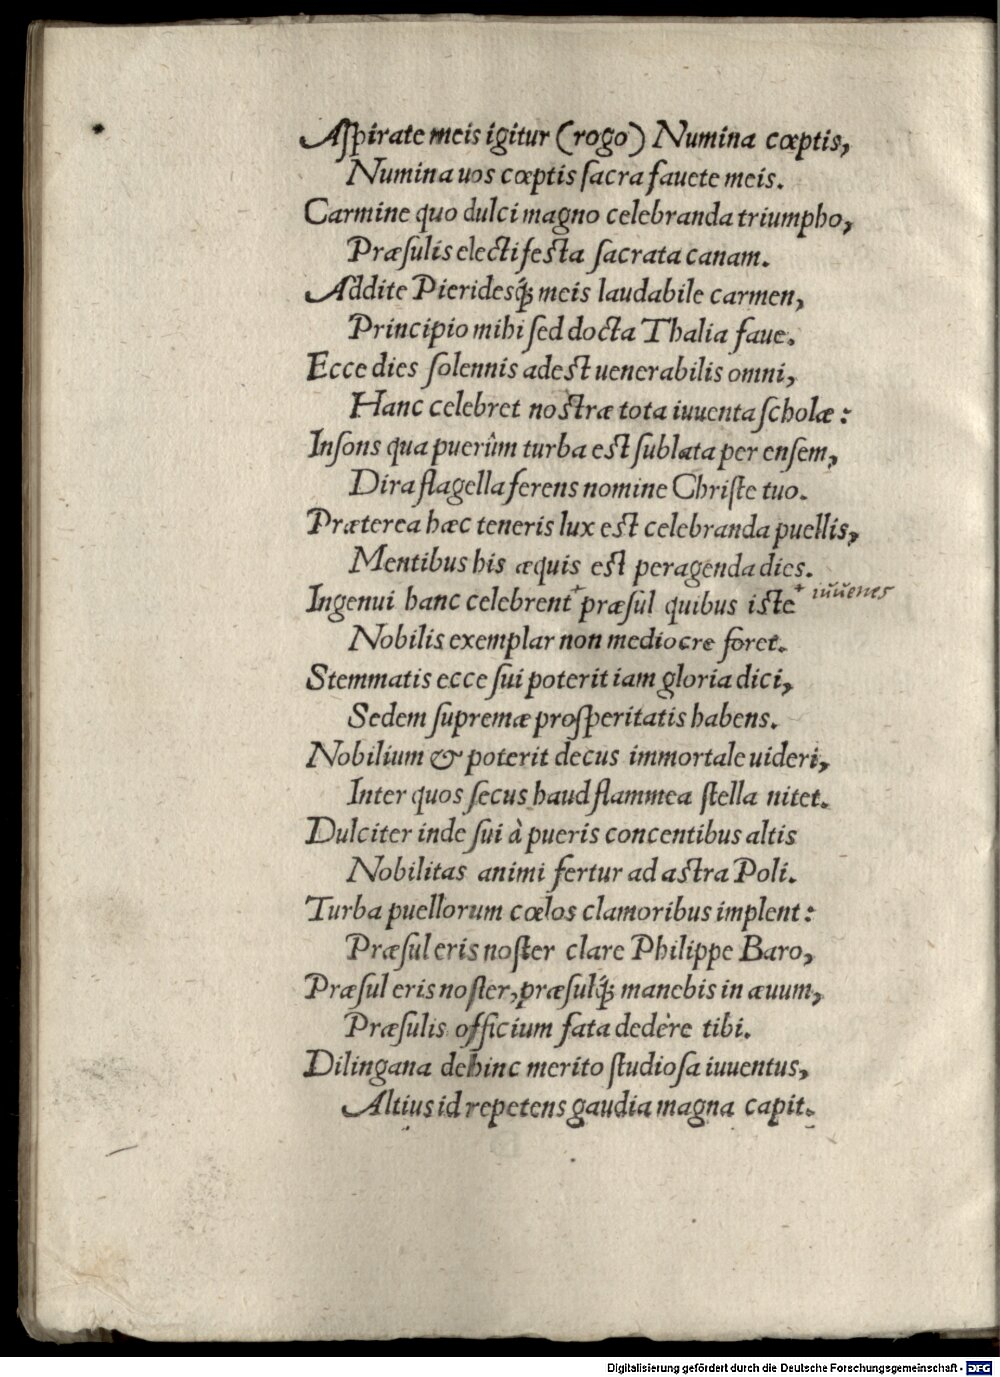 Aſpirate meis igitur (rogo) Numina cœptis,
Numina uos cœptis ſacra fauete meis.
Carmine quo dulci magno celebranda triumpho,
Præſulis electi feſta ſacrata canam.
Addite Pieridesq́ꝫ meis laudabile carmen,
Principio mihi ſed docta Thalia faue.
Ecce dies ſolennis adeſt uenerabilis omni,
Hanc celebret noſtræ tota iuuenta ſcholæ:
Inſons qua puerûm turba eſt ſublata per enſem,
Dira flagella ferens nomine Chriſte tuo.
Præterea hæc teneris lux eſt celebranda puellis,
Mentibus his æquis eſt peragenda dies.
Ingenui hanc celebrent⁺ præſul quibus iſte⁺ iuuenes
Nobilis exemplar non mediocre foret.
Stemmatis ecce ſui poterit iam gloria dici,
Sedem ſupremæ proſperitatis habens.
Nobilium & poterit decus immortale uideri,
Inter quos ſecus haud flammea ſtella nitet.
Dulciter inde ſui à pueris concentibus altis
Nobilitas animi fertur ad aſtra Poli.
Turba puellorum cœlos clamoribus implent:
Præſul eris noſter clare Philippe Baro,
Præſul eris noſter, præſulq́ꝫ manebis in æuum,
Præſulis officium fata dedère tibi.
Dilingana dehinc merito ſtudioſa iuuentus,
Altius id repetens gaudia magna capit.
Digitalisierung gefördert durch die Deutsche Forschungsgemeinschaft - DFG